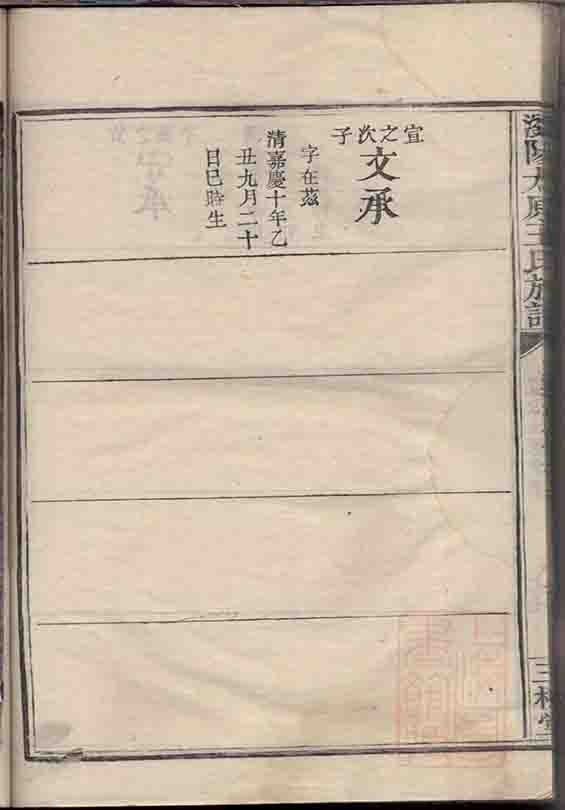 宣之次子
文承
字在茲
清嘉慶十年乙
丑九月二十
日巳時生
太原王氏族譜
三槐堂